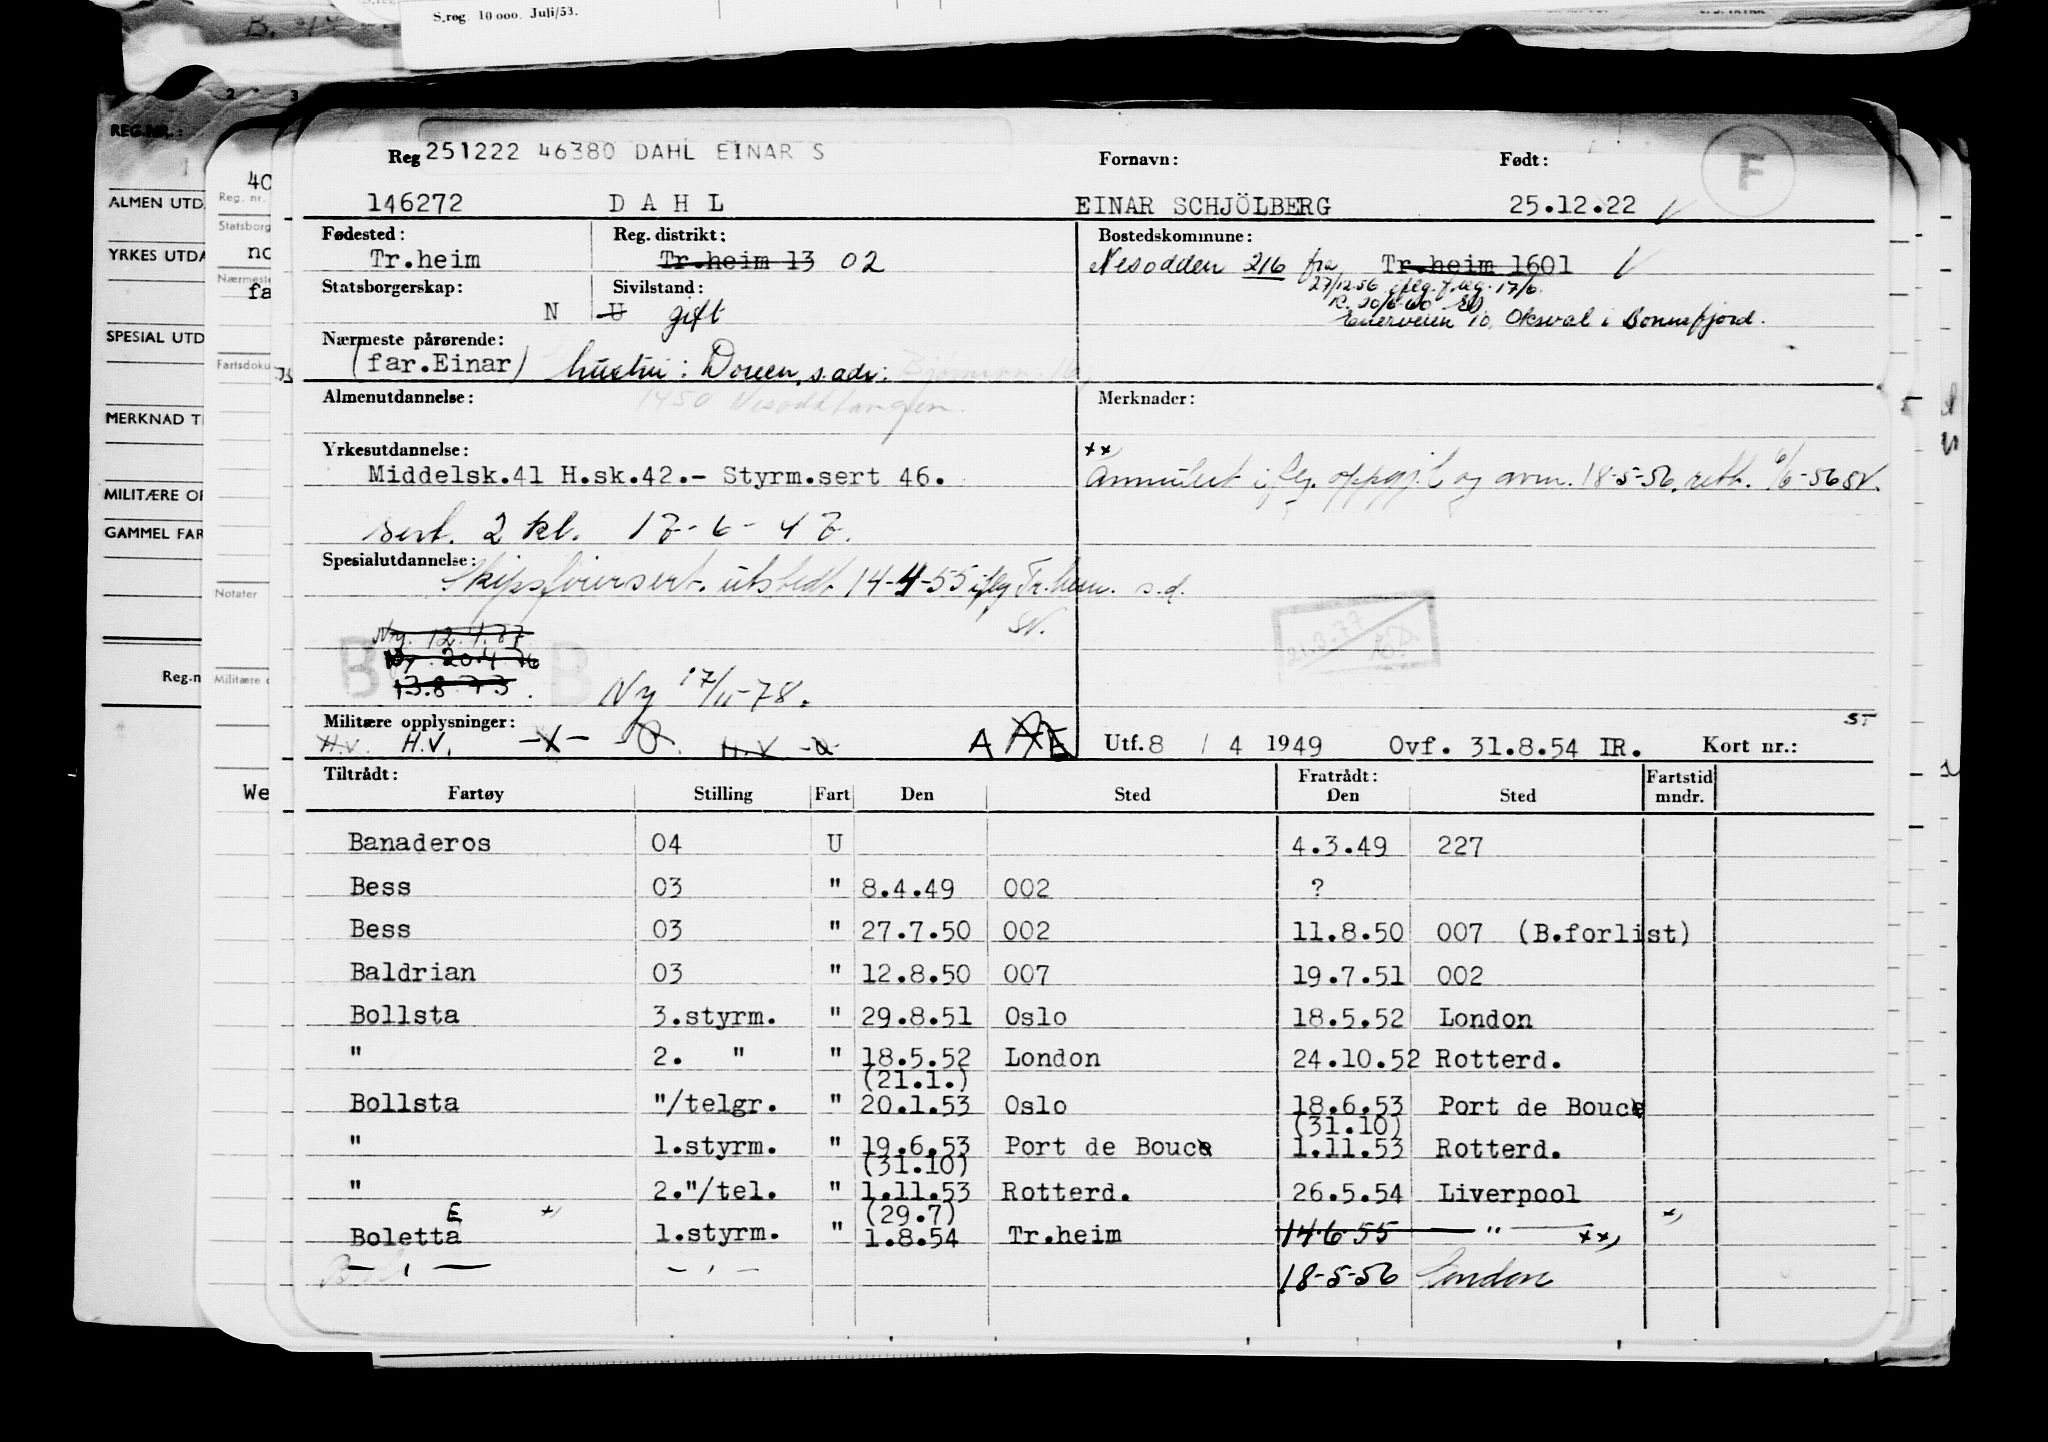 S.reg 10 000. Juli/53.
2 3
REG.NR.:
ALMEN UTD.
YRKES UTDA
SPECIAL UTD
MERKNAD T
MILITÆRE OP
GAMMEL FAR
Reg.n
40
Reg. nr.
Statsborg
no
Nærmeste
fa
Fartsdoku
Notater
Militære o
We
Reg 251222 46380 DAHL EINAR S
Fornavn: Født: F
146272 D A H L EINAR SCHJÖLBERG 25.12.22
Fødested: Reg. distrikt: Bostedskommune:
Tr.heim Tr.heim 13 02 Nesodden 216 fra Tr.heim 1601
27/12-56 iflg. f.reg. 17/6.
Statsborgerskap: Sivilstand:
R. 20/6-60
N U gift 10, Oksval i Bonnefjord.
Nærmeste pårørende:
(far.Einar) hustru: Doreen, s.adr:
Almenutdannelse: 1450 Nesoddtangen. Merknader:
Yrkesutdannelse: xx)
Middelsk.41 H.sk.42.- Styrm.sert 46. Annulert iflg. oppgj.l og avm. 18-5-56, rett. 6/6-56 SN.
sert. 2 kl. 17-6-47.
Spesialutdannelse:
Skipsførersert. utstedt 14-4-55 iflg Tr.heim. s.d.
SN.
Ny. 12.1.77
Ny 20.4.76 21.3.77
13.8.73. B B Ny 17/11-78.
Militære opplysninger: ST
H.V. H.V. -X- H.V. A E Utf. 8 / 4 1949 Ovf. 31.8.54 IR. Kort nr.:
Tiltrådt: Fratrådt: Fartstid
Fartøy Stilling Fart Den Sted Den Sted mndr.
Banaderos 04 U 4.3.49 227
Bess 03 " 8.4.49 002 ?
Bess 03 " 27.7.50 002 11.8.50 007 (B.forlist)
Baldrian 03 " 12.8.50 007 19.7.51 002
Bollsta 3.styrm. " 29.8.51 Oslo 18.5.52 London
" 2. " " 18.5.52 London 24.10.52 Rotterd.
(21.1.)
Bollsta "/telgr. " 20.1.53 Oslo 18.6.53 Port de Bouc
(31.10)
" 1.styrm. " 19.6.53 Port de Bouc 1.11.53 Rotterd.
(31.10)
" 2."/tel. " 1.11.53 Rotterd. 26.5.54 Liverpool
E x) (29.7) x)
Boletta 1.styrm. " 1.8.54 Tr.heim 14-6-55 — " — xx)
— , — — , — 18-5-56 London